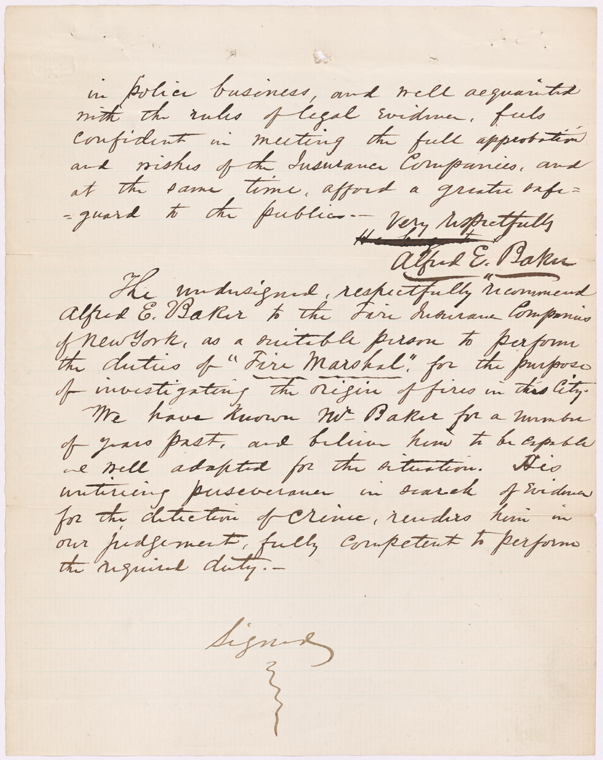 in police business, and well acquainted
with the rules of legal Evidence, feels
confident in meeting the full approbation
and wishes of the Insurance Companies, and
at the same time, afford a greater safe=
=guard to the public.—
Very respectfully
Alfred E. Baker
The undersigned, respectfully "recommend
Alfred E. Baker to the Fire Insurance Companies
of New York, as a suitable person to perform
the duties of "Fire Marshal", for the purpose
of investigating the origin of fires in this City.
We have known Mr Baker for a number
of years past, and believe him to be capable
well adapted for the situation. His
untiring perseverance in search of Evidence
for the detection of crime, renders him in
our judgement, fully competent to perform
the required duty.—
Signed